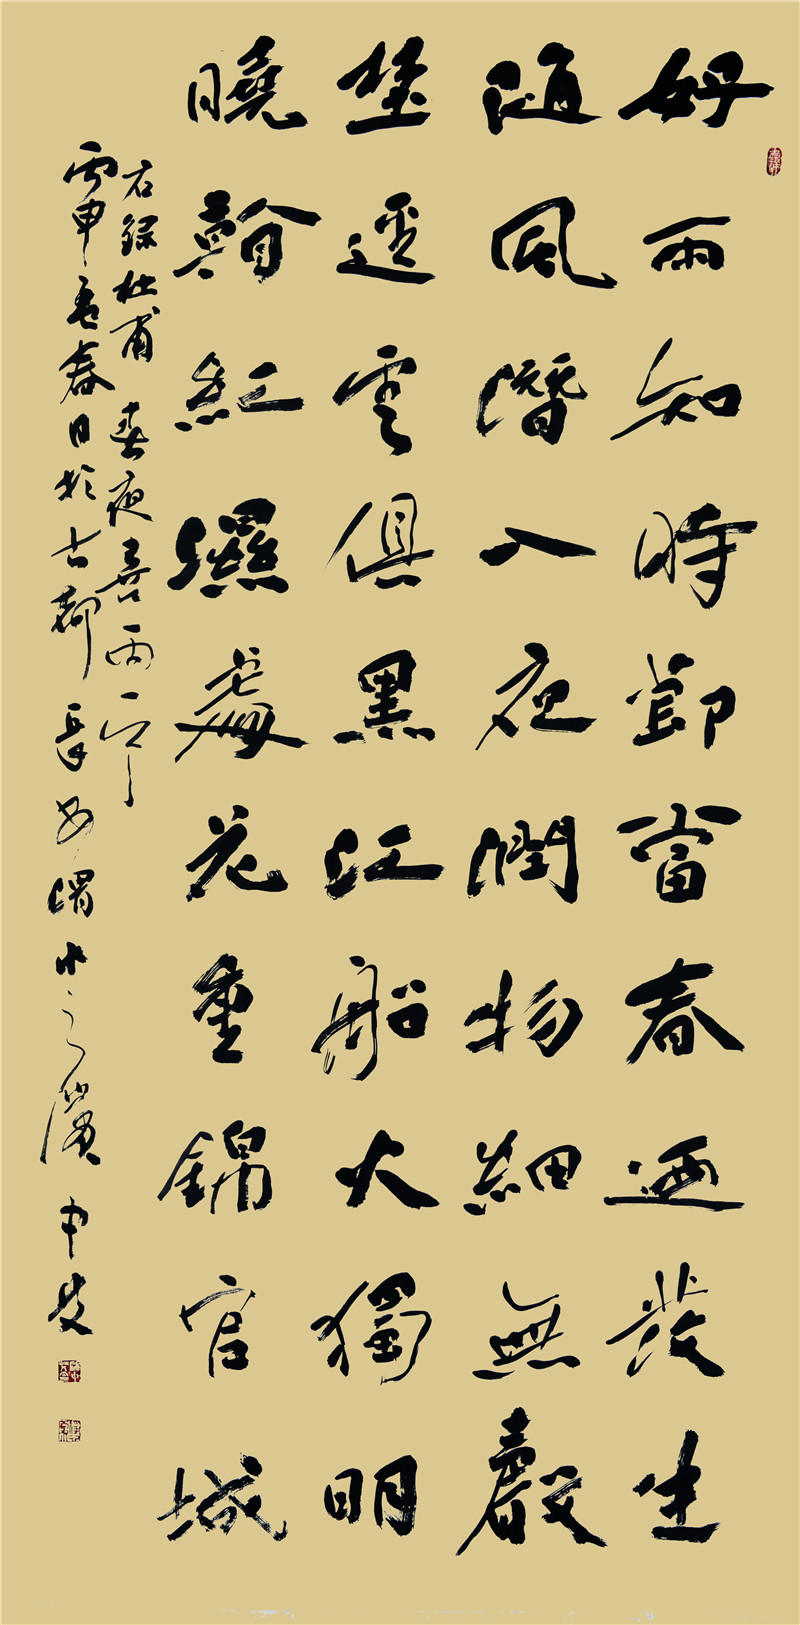 好雨知時節當春迺發生
隨風潛入夜潤物細無聲
埜逕雲俱黑江船火獨明
曉看紅濕處花重錦官城
右錄杜甫春夜喜雨一
丙申孟春日於古都長安渭水之濱